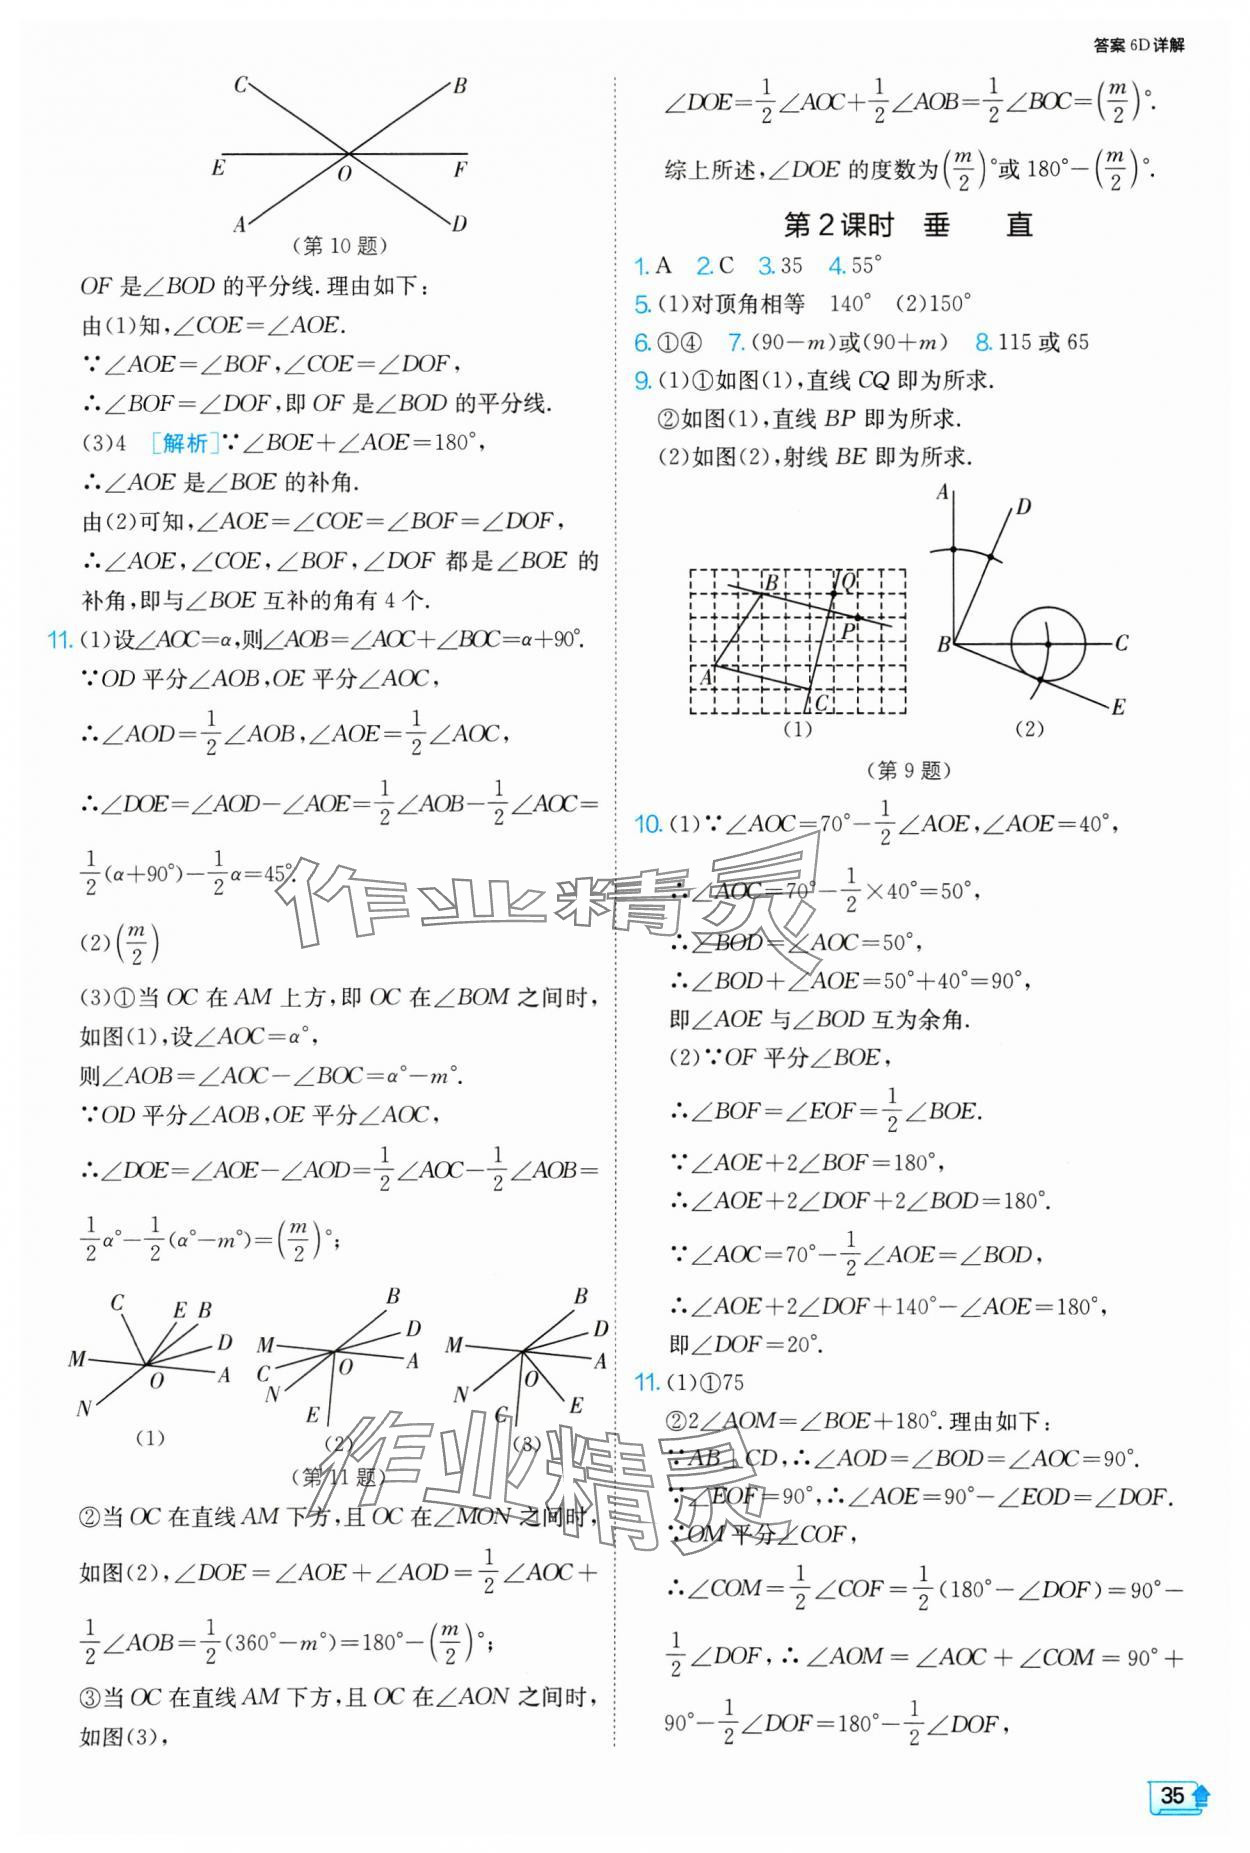 答案 6D 详解
C
B
E
O
F
A
D
(第 10 题)
OF 是∠BOD 的平分线. 理由如下:
由(1)知,∠COE=∠AOE.
∵∠AOE=∠BOF,∠COE=∠DOF,
∴∠BOF=∠DOF,即 OF 是∠BOD 的平分线.
(3)4 [解析]∵∠BOE+∠AOE=180°,
∴∠AOE 是∠BOE 的补角.
由(2)可知,∠AOE=∠COE=∠BOF=∠DOF,
∴∠AOE,∠COE,∠BOF,∠DOF 都是∠BOE 的
补角,即与∠BOE 互补的角有 4 个.
11. (1)设∠AOC=α,则∠AOB=∠AOC+∠BOC=α+90°.
∵OD 平分∠AOB,OE 平分∠AOC,
∴∠AOD=1/2∠AOB,∠AOE=1/2∠AOC,
∴∠DOE=∠AOD-∠AOE=1/2∠AOB-1/2∠AOC=
1/2(α+90°)-1/2α=45°.
(2)(m/2)
(3)①当 OC 在 AM 上方,即 OC 在∠BOM 之间时,
如图(1),设∠AOC=α°,
则∠AOB=∠AOC-∠BOC=α°-m°.
∵OD 平分∠AOB,OE 平分∠AOC,
∴∠DOE=∠AOE-∠AOD=1/2∠AOC-1/2∠AOB=
1/2α°-1/2(α°-m°)=(m/2)°;
C E B D M O A N
(1)
B D M A C O N E
(2)
B D M A O N C E
(3)
(第 11 题)
②当 OC 在直线 AM 下方,且 OC 在∠MON 之间时,
如图(2),∠DOE=∠AOE+∠AOD=1/2∠AOC+
1/2∠AOB=1/2(360°-m°)=180°-(m/2)°;
③当 OC 在直线 AM 下方,且 OC 在∠AON 之间时,
如图(3),
∠DOE=1/2∠AOC+1/2∠AOB=1/2∠BOC=(m/2)°.
综上所述,∠DOE 的度数为(m/2)°或 180°-(m/2)°.
第 2 课时 垂 直
1. A 2. C 3. 35 4. 55°
5. (1)对顶角相等 140° (2)150°
6. ①④ 7. (90-m)或(90+m) 8. 115 或 65
9. (1)①如图(1),直线 CQ 即为所求.
②如图(1),直线 BP 即为所求.
(2)如图(2),射线 BE 即为所求.
B Q P A C
(1)
A D B C E
(2)
(第 9 题)
10. (1)∵∠AOC=70°-1/2∠AOE,∠AOE=40°,
∴∠AOC=70°-1/2×40°=50°,
∴∠BOD=∠AOC=50°,
∴∠BOD+∠AOE=50°+40°=90°,
即∠AOE 与∠BOD 互为余角.
(2)∵OF 平分∠BOE,
∴∠BOF=∠EOF=1/2∠BOE.
∵∠AOE+2∠BOF=180°,
∴∠AOE+2∠DOF+2∠BOD=180°.
∵∠AOC=70°-1/2∠AOE=∠BOD,
∴∠AOE+2∠DOF+140°-∠AOE=180°,
即∠DOF=20°.
11. (1)①75
②2∠AOM=∠BOE+180°. 理由如下:
∵AB⊥CD,∴∠AOD=∠BOD=∠AOC=90°.
∵∠EOF=90°,∴∠AOE=90°-∠EOD=∠DOF.
∵OM 平分∠COF,
∴∠COM=1/2∠COF=1/2(180°-∠DOF)=90°-
1/2∠DOF,∴∠AOM=∠AOC+∠COM=90°+
90°-1/2∠DOF=180°-1/2∠DOF,
作业精灵
作业精灵
35